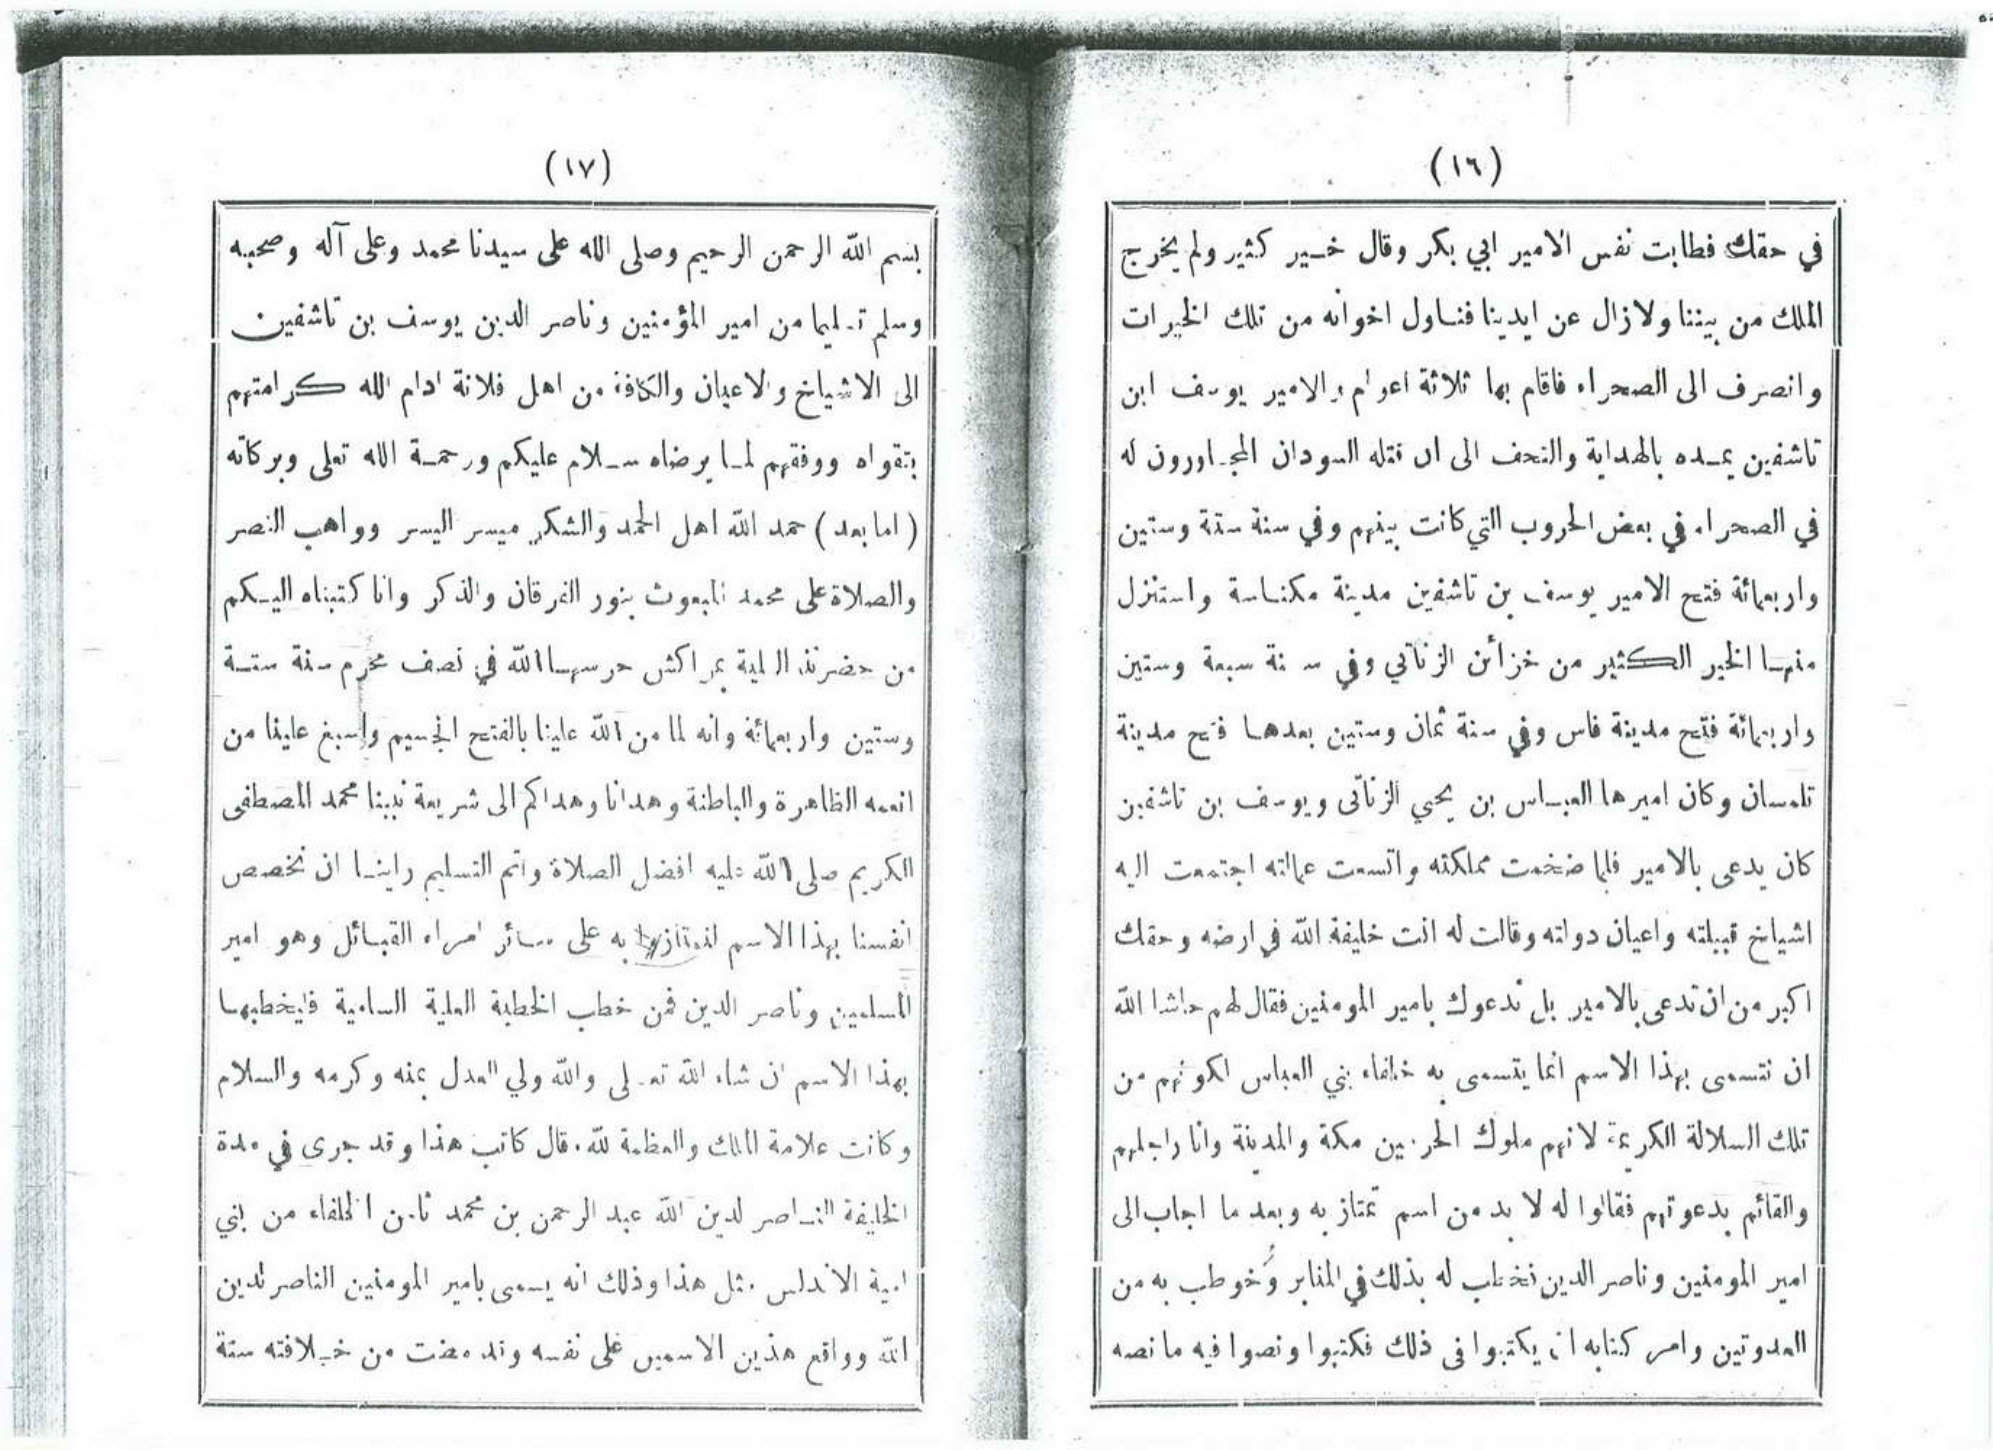 (١٦)
في حقك فطابت نفس الامير ابي بكر وقال خير كثير ولم يخرج
الملك من بيننا ولازال عن ايدينا فناول اخوانه من تلك الخيرات
وانصرف الى الصحراء فاقام بها ثلاثة اعوام والامير يوسف ابن
تاشفين يمده بالهداية والتحف الى ان قتله السودان المجاورون له
في الصحراء في بعض الحروب التي كانت بينهم وفي سنة ستة وستين
واربعمائة فتح الامير يوسف بن تاشفين مدينة مكناسة واستنزل
منها الخير الكثير من خزائن الزناتي وفي سنة سبعة وستين
واربعمائة فتح مدينة فاس وفي سنة ثمان وستين بعدها فتح مدينة
تلمسان وكان اميرها العباس بن يحيي الزناتى ويوسف بن تاشفين
كان يدعى بالامير فلما ضخمت مملكته واتسعت عمالته اجتمعت اليه
اشياخ قبيلته واعيان دولته وقالت له انت خليفة الله في ارضه وحقك
اكبر من ان تدعى بالامير بل ندعوك بامير المومنين فقال لهم حاشا الله
ان نتسمى بهذا الاسم انما يتسمى به خلفاء بني العباس لكونهم من
تلك السلالة الكريمة لانهم ملوك الحرمين مكة والمدينة وانا راجلهم
والقائم بدعوتهم فقالوا له لا بد من اسم تمتاز به وبعد ما اجاب الى
امير المومنين وناصر الدين نخطب له بذلك في المنابر وخوطب به من
العدوتين وامر كتابه ان يكتبوا فى ذلك فكتبوا ونصوا فيه ما نصه
(١٧)
بسم الله الرحمن الرحيم وصلى الله على سيدنا محمد وعلى آله وصحبه
وسلم تسليما من امير المؤمنين وناصر الدين يوسف بن تاشفين
الى الاشياخ والاعيان والكافة من اهل فلانة ادام الله كرامتهم
بتقواه ووفقهم لما يرضاه سلام عليكم ورحمة الله تعلى وبركاته
(اما بعد) حمد الله اهل الحمد والشكر ميسر اليسر وواهب النصر
والصلاة على محمد المبعوث بنور الفرقان والذكر وانا كتبناه اليكم
من حضرتنا العلية بمراكش حرسها الله في نصف محرم سنة ستة
وستين واربعمائة وانه لما من الله علينا بالفتح الجسيم واسبغ علينا من
انعمه الظاهرة والباطنة وهدانا وهداكم الى شريعة نبينا محمد المصطفى
الكريم صلى الله عليه افضل الصلاة واتم التسليم راينا ان نخصص
انفسنا بهذا الاسم لنمتاز به على سائر امراء القبائل وهو امير
المسلمين وناصر الدين فمن خطب الخطبة العلية السامية فليخطبها
بهذا الاسم ان شاء الله تعلى والله ولي العدل بمنه وكرمه والسلام
وكانت علامة الملك والعظمة لله. قال كاتب هذا وقد جرى في مدة
الخليفة الناصر لدين الله عبد الرحمن بن محمد ثامن الخلفاء من بني
امية الاندلس مثل هذا وذلك انه يسمى بامير المومنين الناصر لدين
الله وواقع هذين الاسمين على نفسه وقد مضت من خلافته ستة